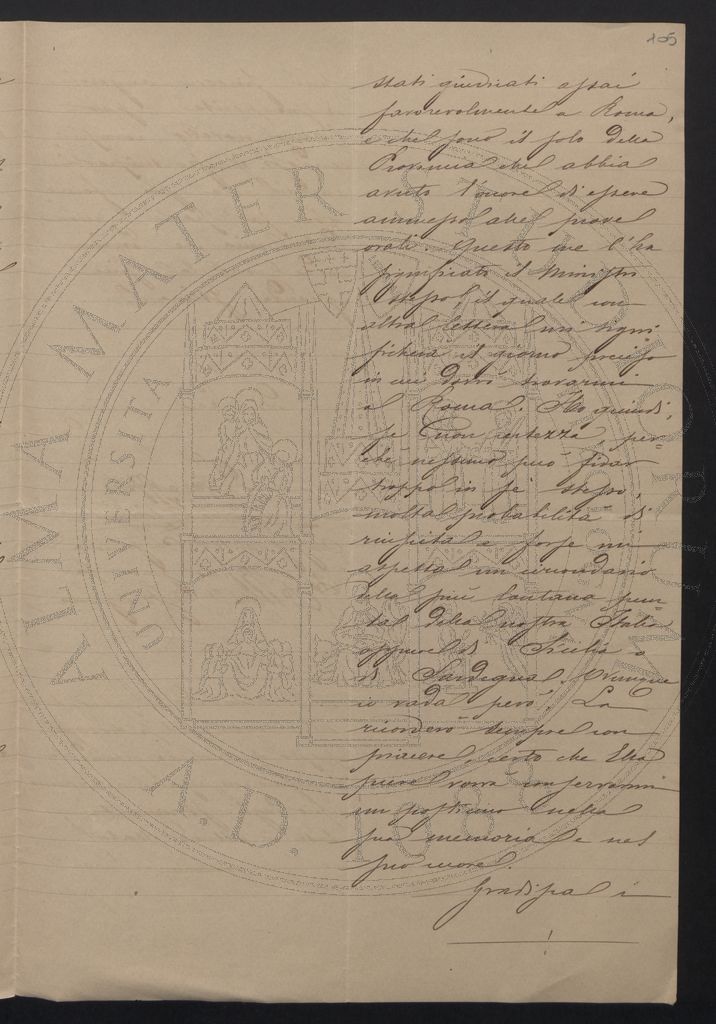 105
stati giudicati assai
favorevolmente a Roma,
e che sono il solo della
Provincia che abbia
avuto l'onore di essere
ammesso alle prove
orali. Questo me l'ha
significato il Ministro
stesso il quale con
altra lettera mi signi
ficherà il giorno preciso
in cui dovrò trovarmi
a Roma. Ho quindi,
se non certezza, per-
chè nessuno può fidar
troppo in se stesso,
molta probabilità di
riuscita e forse mi
aspetta un circondario
della più lontana pun-
ta della nostra Italia
oppure di Sicilia o
di Sardegna. Ovunque
io vada però, La
ricorderò sempre con
piacere, certo che Ella
pure vorrà conservarmi
un posticino nella
sua memoria e nel
suo cuore.
Gradisca i
ALMA MATER STUDIORUM
UNIVERSITA
A.D. 1088